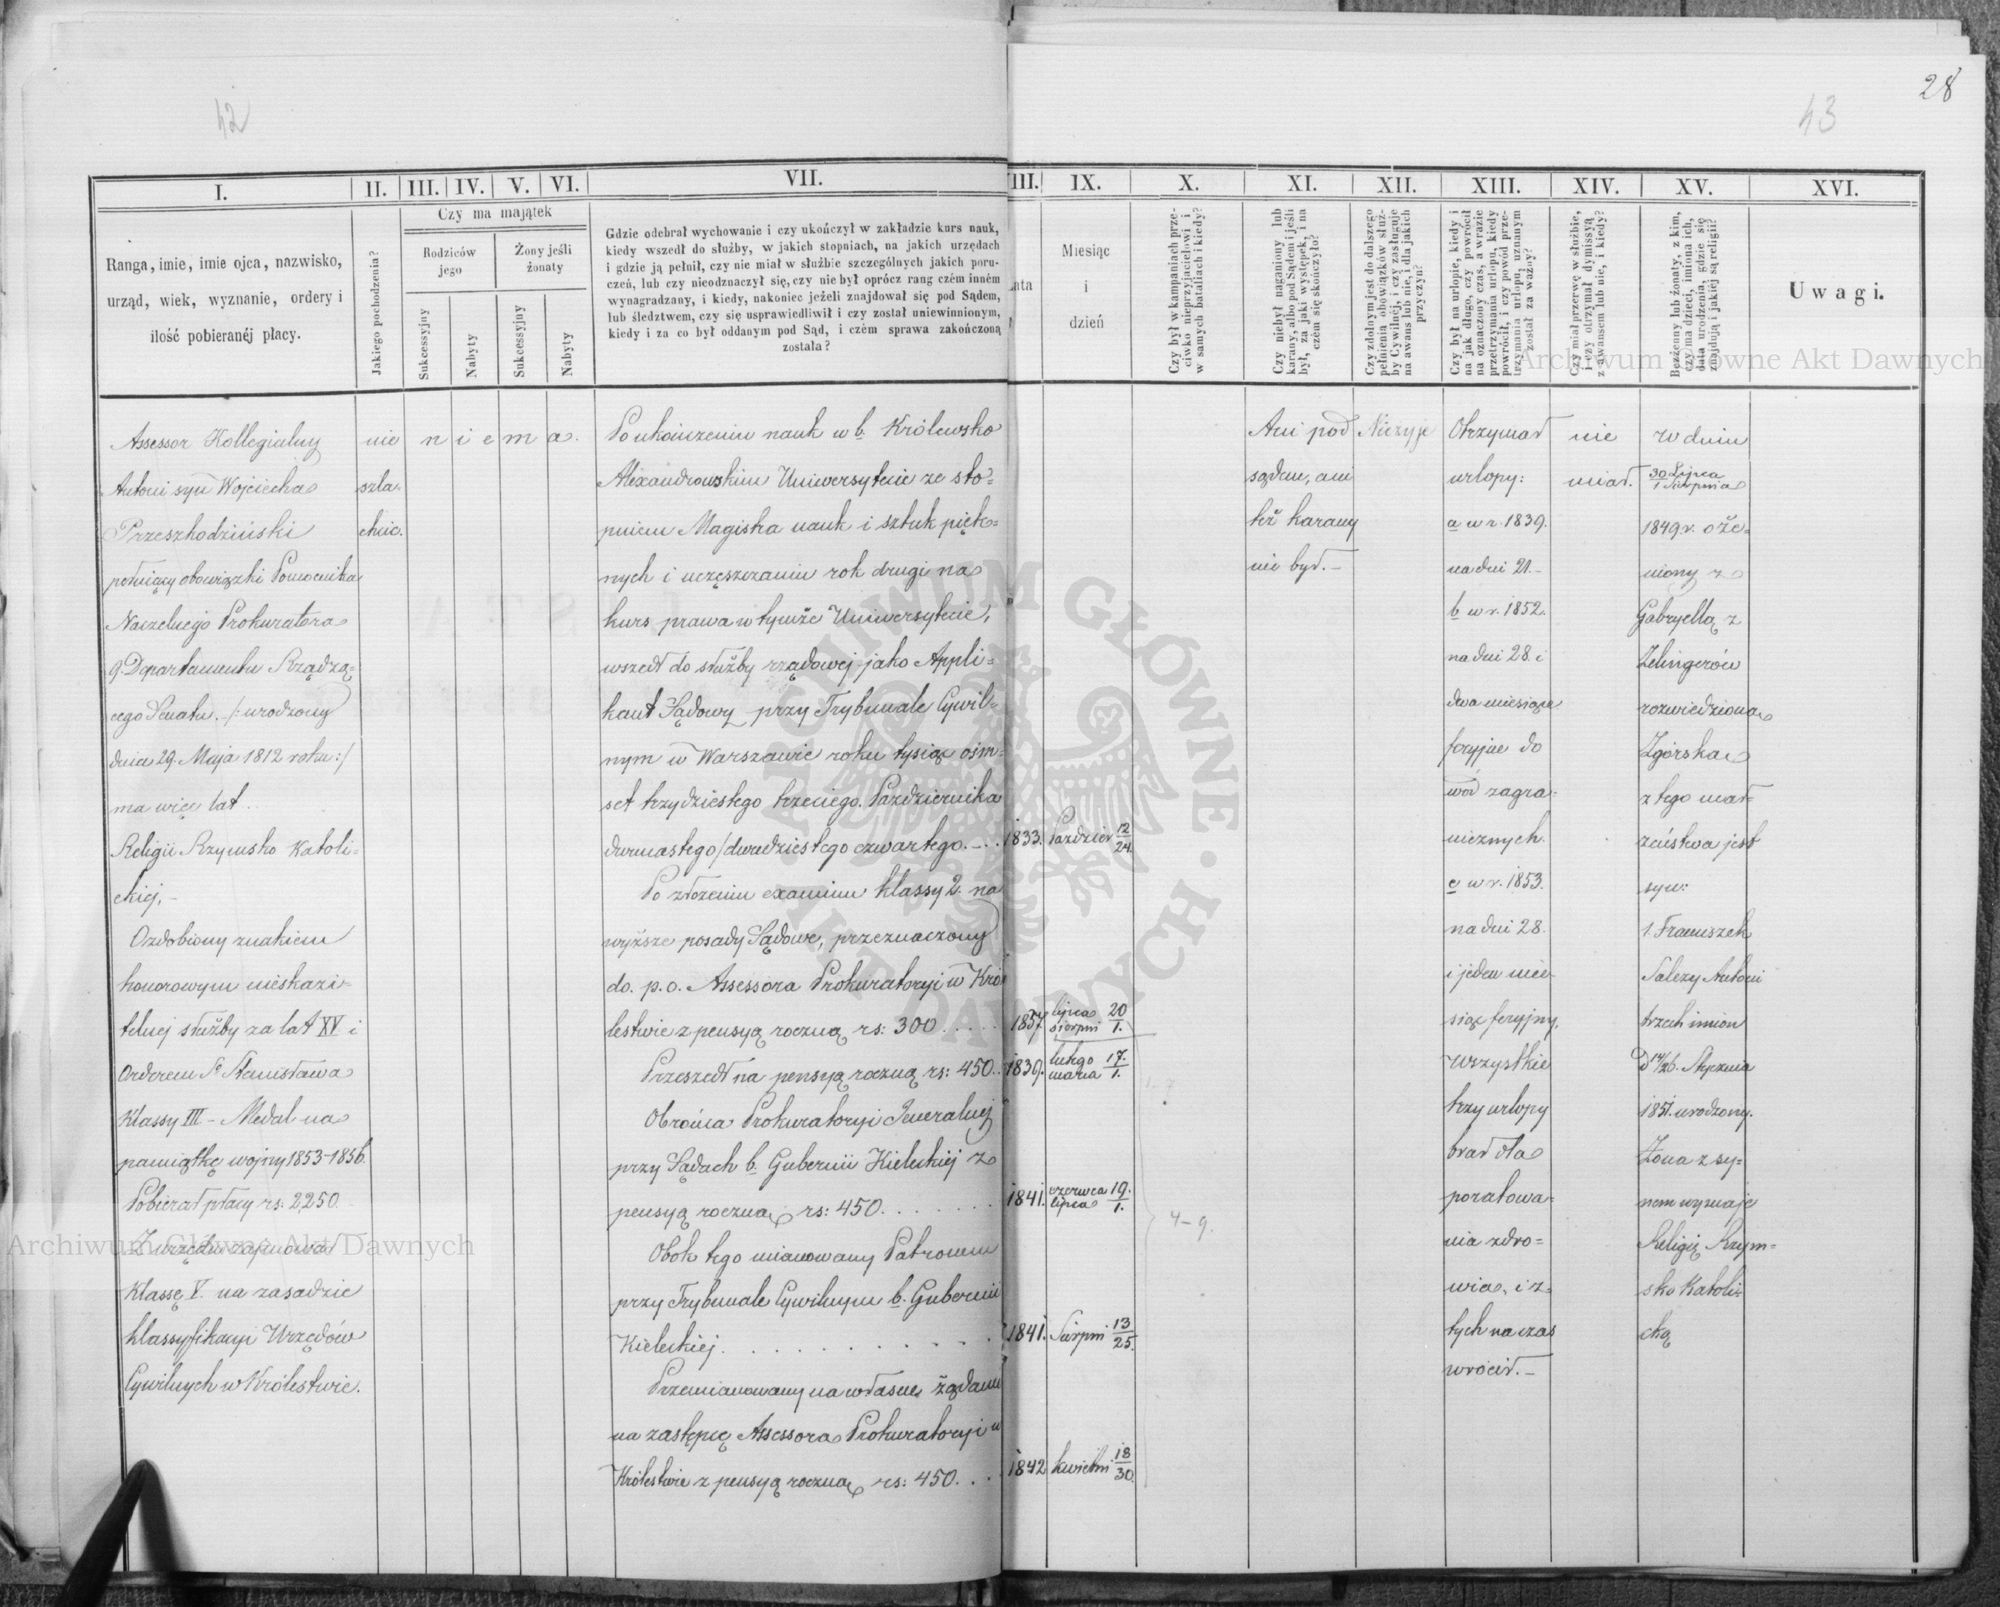 42
43
28
I.
II.
III.
IV.
V.
VI.
VII.
III.
IX.
X.
XI.
XII.
XIII.
XIV.
XV.
XVI.
Ranga, imie, imie ojca, nazwisko,
urząd, wiek, wyznanie, ordery i
ilość pobieranéj płacy.
Jakiego pochodzenia?
Czy ma majątek
Rodziców
jego
Żony jeśli
żonaty
Sukcessyjny
Nabyty
Sukcessyjny
Nabyty
Gdzie odebrał wychowanie i czy ukończył w zakładzie kurs nauk,
kiedy wszedł do służby, w jakich stopniach, na jakich urzędach
i gdzie ją pełnił, czy nie miał w służbie szczególnych jakich poru-
czeń, lub czy nieodznaczył się, czy nie był oprócz rang czém inném
wynagradzany, i kiedy, nakoniec jeżeli znajdował się pod Sądem,
lub śledztwem, czy się usprawiedliwił i czy został uniewinnionym,
kiedy i za co był oddanym pod Sąd, i czém sprawa zakończoną
została?
Lata
Miesiąc
i
dzień
Czy był w kampaniach prze-
ciwko nieprzyjacielowi i
w samych batalіach i kiedy?
Czy niebył naganiony lub
karany, albo pod Sądem i jeśli
był, za jaki występek, i na
czém się skończyło?
Czy zdolnym jest do dalszego
pełnienia obowiązków służ-
by Cywilnéj, i czy zasługuje
na awans lub nie, i dla jakich
przyczyn?
Czy był na urlopie, kiedy i
na jak długo, czy powrócił
na oznaczony czas, a w razie
przetrzymania urlopu, kiedy
powrócił, i czy powód prze-
trzymania urlopu, uznanym
został za ważny?
Czy miał przerwę w służbie,
i czy otrzymał dymissyą
z awansem lub nie, i kiedy?
Bezżenny lub żonaty, z kim,
czy ma dzieci, imiona ich,
data urodzenia, gdzie się
znajdują i jakiéj są religii?
Uwagi.
Assessor Kollegialny
Antoni syn Wojciecha
Przeszkodziński
pełniący obowiązki Pomocnika
Naczelnego Prokuratora
9. Departamentu Rządzą-
cego Senatu. /: urodzony
dnia 29. Maja 1812 roku :/
ma więc lat
Religii Rzymsko Katoli-
ckiej, -
Ozdobiony znakiem
honorowym nieskazi-
telnej służby za lat XV i
Orderem Sº Stanisława
Klassy III - Medal na
pamiątkę wojny 1853-1856.
Pobierał płacy rs: 2,250.
Z urzędu zajmował
Klassę V. na zasadzie
klassyfikacyi Urzędów
Cywilnych w Królestwie.
nie
szla-
chcic.
n i e m a.
Po ukończeniu nauk w b. Królewsko
Alexandrowskim Uniwersytecie ze sto-
pniem Magistra nauk i sztuk pięk-
nych i uczęszczaniu rok drugi na
kurs prawa w tymże Uniwersytecie,
wszedł do służby rządowej jako Appli-
kant Sądowy przy Trybunale Cywil-
nym w Warszawie roku tysiąc ośm-
set trzydziestego trzeciego. Października
dwunastego/dwudziestego czwartego. - . . 1833. Paździer 12/24.
Po złożeniu examinu klassy 2. na
wyższe posady Sądowe, przeznaczony
do. p.o. Assessora Prokuratoryi w Kró
lestwie z pensyą roczną rs: 300 . . . . . 1837. lipca sierpni 20/1.
Przeszedł na pensyą roczną rs: 450. . 1839. lutego marca 17./1.
Obrońca Prokuratoryi Jeneralnej
przy Sądach b. Gubernii Kieleckiej z
pensyą roczną rs: 450. . . . . . . 1841. czerwca lipca 19./1.
Obok tego mianowany Patronem
przy Trybunale Cywilnym b. Gubernii
Kieleckiej. . . . . . . . . . . 1841. Sierpni 13/25.
Przemianowany na własne żądanie
na zastępcę Assessora Prokuratoryi w
Królestwie z pensyą roczną rs: 450. . . 1842 kwietni 18/30.
4-9.
Ani pod
sądem, ani
też karany
nie był. -
Nieżyje
Otrzymał
urlopy:
a w r. 1839.
na dni 21. -
b w r. 1852.
na dni 28. i
dwa miesiące
feryjne do
wód zagra-
nicznych.
c w r. 1853.
na dni 28.
i jeden mie-
siąc feryjny.
Wszystkie
trzy urlopy
brał dla
poratowa-
nia zdro-
wia, i z
tych na czas
wrócił. -
nie
miał.
w dniu
30 Lipca
1 Sierpnia
1849 r. oże-
niony z
Gabryellą z
Zelingerów
rozwiedzioną
Zgórską
z tego mał-
żeństwa jest
syn:
1. Franciszek
Salezy Antoni
trzech imion
D 14/26. Stycznia
1851. urodzony.
Żona z sy-
nem wyznaje
Religią Rzym-
sko Katoli-
cką
Archiwum Główne Akt Dawnych
Archiwum Główne Akt Dawnych
ARCHIWUM GŁÓWNE AKT DAWNYCH